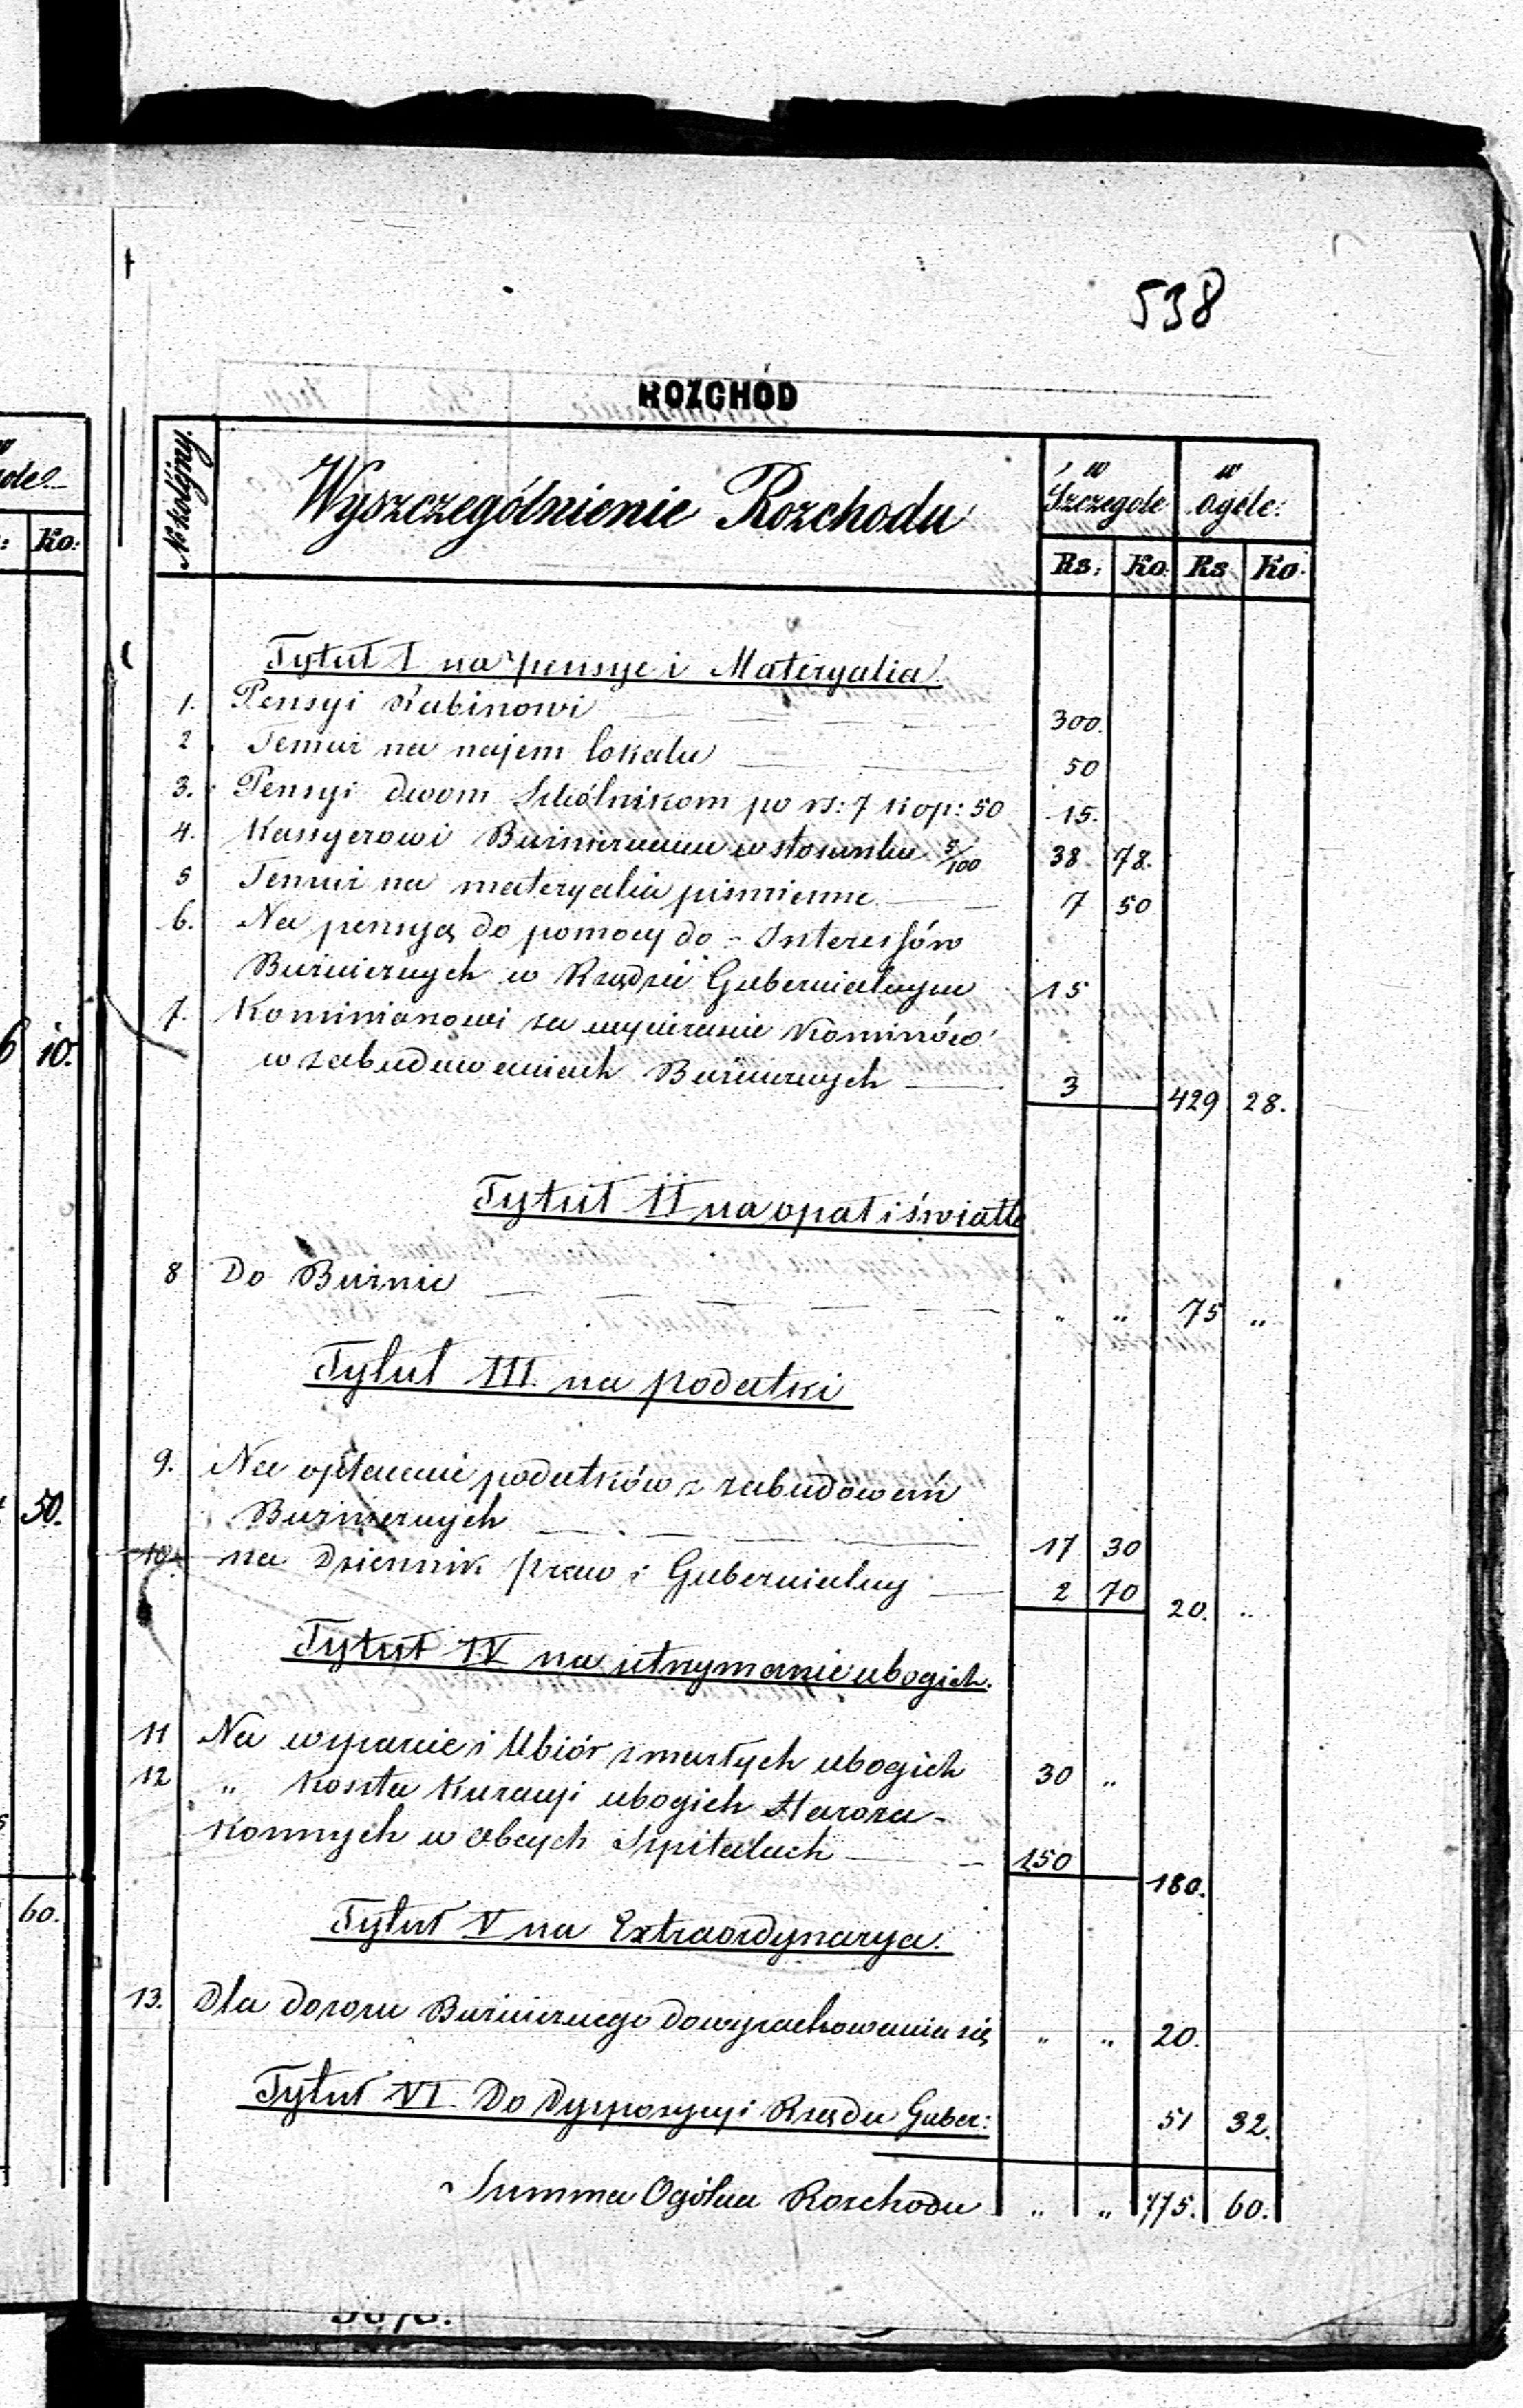 538
ROZCHÓD
№ kolejny.
Wyszczególnienie Rozchodu
w Szczegole
w ogóle:
Rs: Ko: Rs Ko:
Tytuł I na pensye i Materyalia.
1. Pensyi Rabinowi 300.
2 Temuż na najem lokalu 50
3. Pensyi dwom Szkólnikom po rs: 7 kop: 50 15.
4. Kassyerowi Bużniczemu w stosunku 5/100 38 78.
5 Temuż na materyalia piśmienne 7 50
6. Na pensyą do pomocy do Interessów
Bużniczych w Rządzie Gubernialnym 15
7. Kominiarowi za wycieranie Kominów
w zabudowaniach Bużniczych 3 429 28.
Tytuł II na opał i światło
8 Do Bużnic „ „ 75 „
Tytuł III. na podatki
9. Na opłacenie podatków z zabudowań
Bużniczych 17 30
10 na Dziennik praw i Gubernialny 2 70 20. „
Tytuł IV na utrzymanie ubogich.
11 Na wsparcie i Ubiór zmarłych ubogich 30 „
12 „ Koszta Kuracyi ubogich Staroza-
konnych w obcych Szpitalach 150 180.
Tytuł V na Extraordynarya.
13. Dla dozoru Bużniczego do wyrachowania się „ „ 20.
Tytuł VI. Do Dyspozycyi Rządu Guber: 51 32.
Summa Ogólna Rozchodu „ „ 775. 60.
Ko:
10.
50.
60.